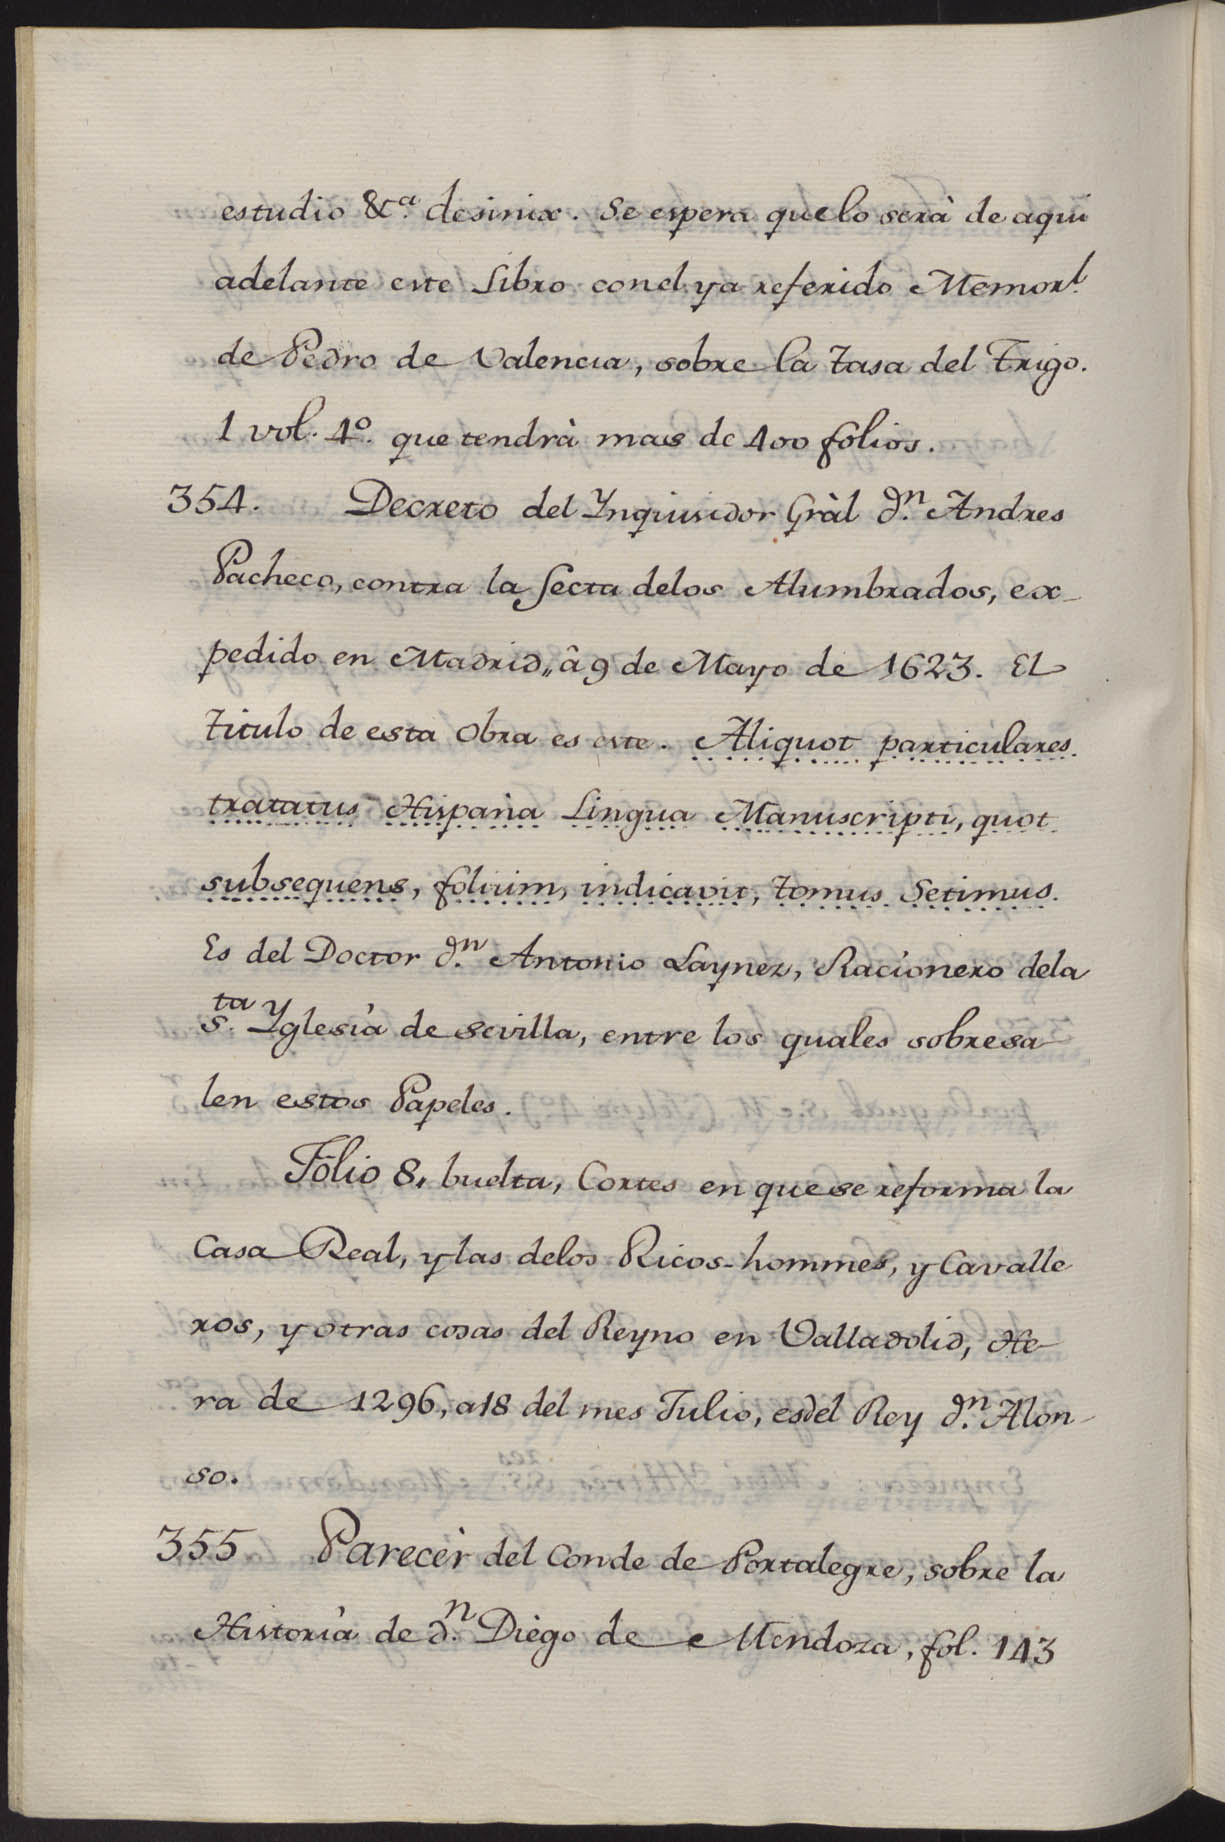 estudio &c.ª desinix. Se espera quelo serà de aqui
adelante este Libro conel ya referido Memor.l
de Pedro de Valencia, sobre la Tasa del Trigo.
1 vol. 4º. que tendrà mas de 400 folios.
354. Decreto del Ynquisidor Gràl d.n Andres
Pacheco, contra la Secta delos Alumbrados, ex-
pedido en Madrid,, â 9 de Mayo de 1623. El
Titulo de esta Obra es este. Aliquot particulares
tratatus Hispana Lingua Manuscripti, quot
subsequens, folium, indicavit, Tomus Setimus.
Es del Doctor d.n Antonio Laynez, Racionero dela
S.ta Yglesia de Sevilla, entre los quales sobresa-
len estos Papeles.
Fólio 8, buelta, Cortes en que se reforma la
Casa Real, y las delos Ricos-hommes, y Cavalle
ros, y otras cosas del Reyno en Valladolid, He-
ra de 1296, a 18 del mes Julio, esdel Rey d.n Alon-
so.
355 Parecèr del Conde de Portalegre, sobre la
Historia de d.n Diego de Mendoza, fol. 143